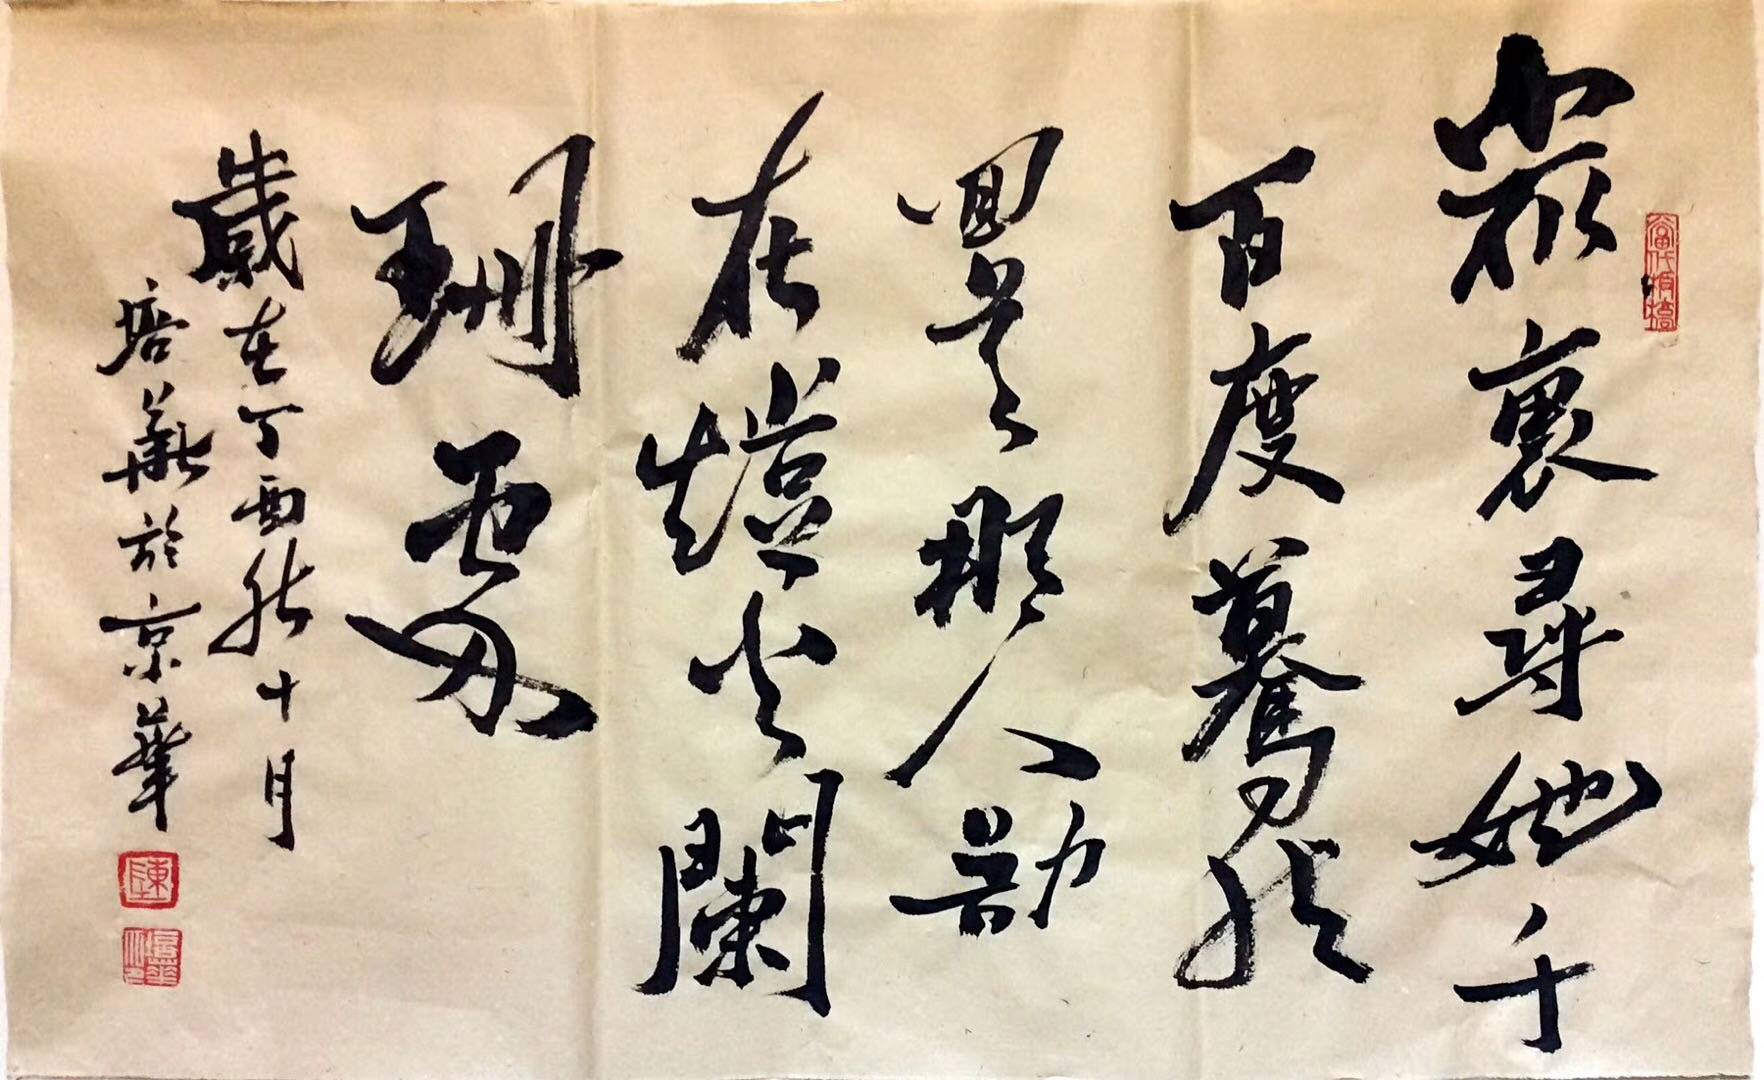 眾裏尋她千
百度驀然
回首那人却
在燈火闌
珊處
歲在丁酉秋十月
培華於京華
陳